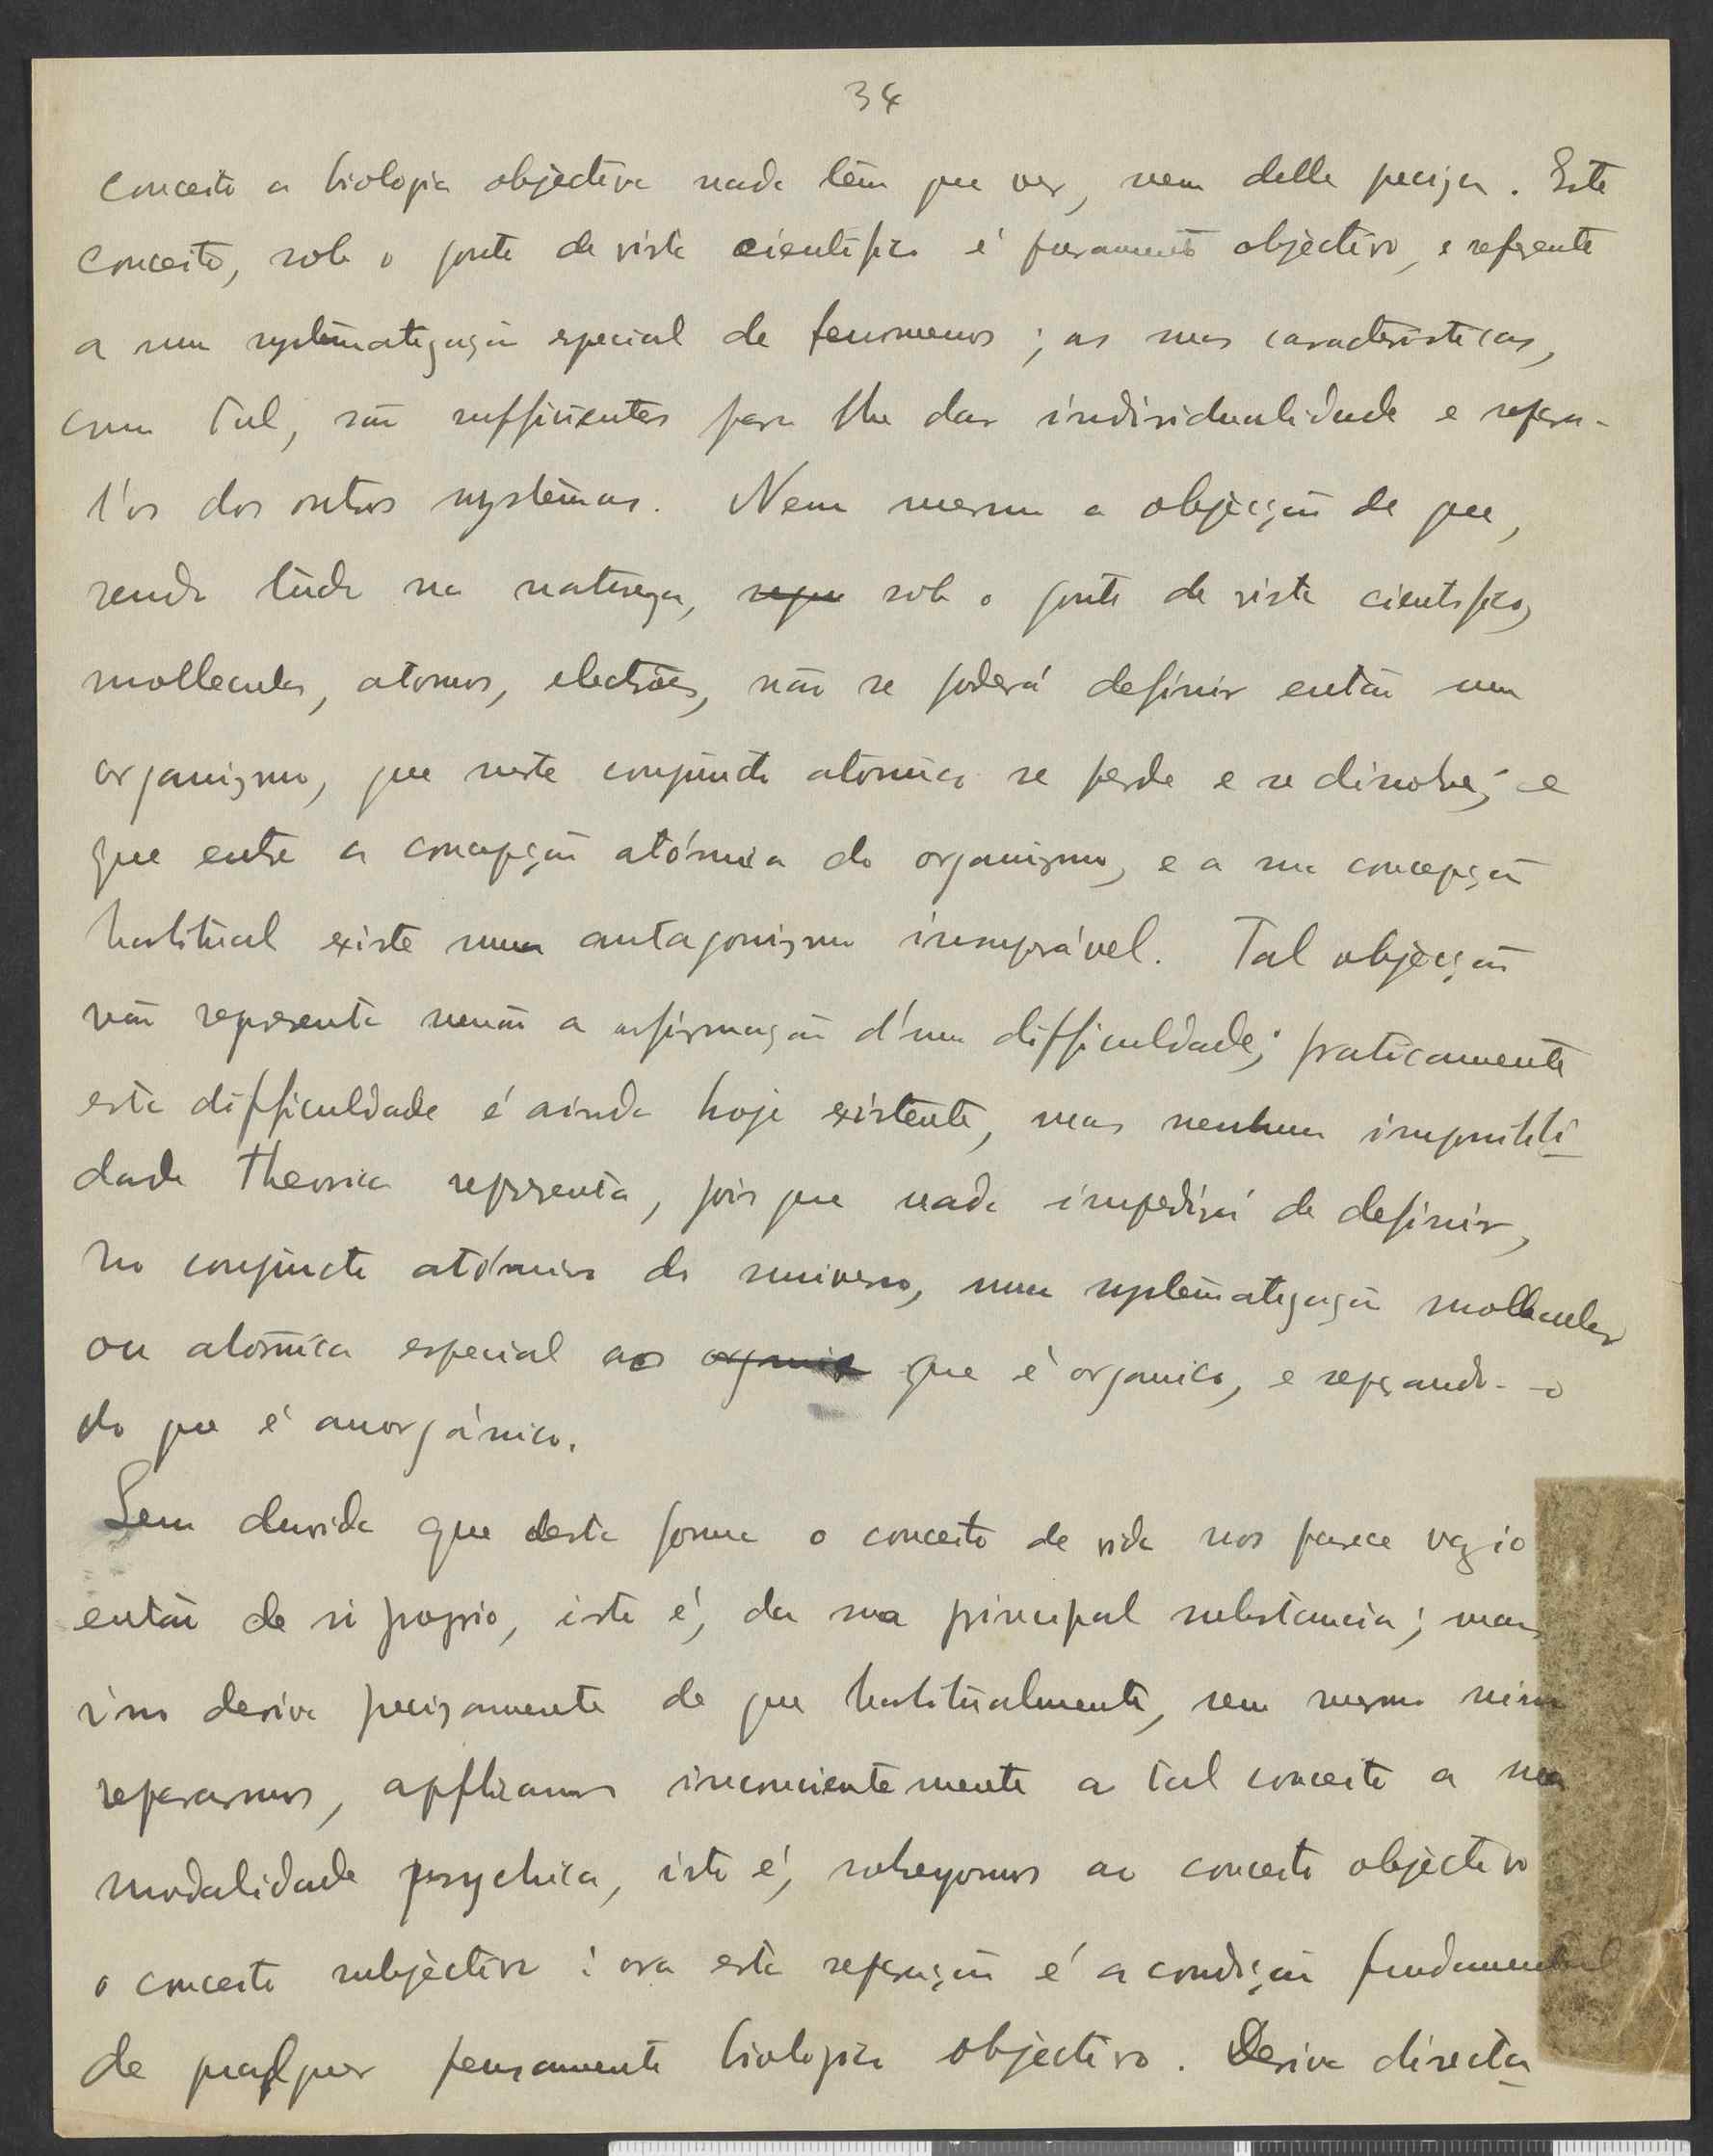 34
conceito a biologia objectiva nada tem que ver, nem delle preciza. Este
conceito, sob o ponto de vista cientifico é puramente objectivo, e referente
a uma systematização especial de fenomenos; as suas caracteristicas,
como tal, são sufficientes para lhe dar individualidade e separa-
l'os dos outros systemas. Nem mesmo a objecção de que,
sendo tudo na natureza, sob o ponto de vista cientifico,
molleculas, atomos, electrões, não se poderá definir então um
organizmo, que neste conjuncto atomico se perde e se dissolve; e
que entre a concepção atómica do organizmo, e a sua concepção
habitual existe um antagonizmo insuperável. Tal objecção
não representa senão a affirmação d'uma difficuldade; praticamente
esta difficuldade é ainda hoje existente, mas nenhuma impossibili-
dade theorica reprezenta, pois que nada impedirá de definir,
no conjuncto atómico do universo, uma systematização mollecular
ou atomica especial ao que é organico, e separando-o
do que é anorgánico.
Sem duvida que desta forma o conceito de vida nos parece vazio
então de si proprio, isto é, da sua principal substancia; mas
isso deriva precizamente de que habitualmente, sem mesmo nisso
repararmos, applicamos inconcientemente a tal conceito a sua
modalidade psychica, isto é, sobrepomos ao conceito objectivo
o conceito subjectivo: ora esta separação é a condição fundamental
de qualquer pensamento biologico objectivo. Deriva directa